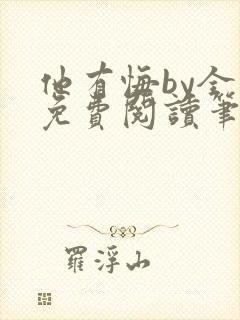 他有悔by金
免費閱讀筆
羅浮山